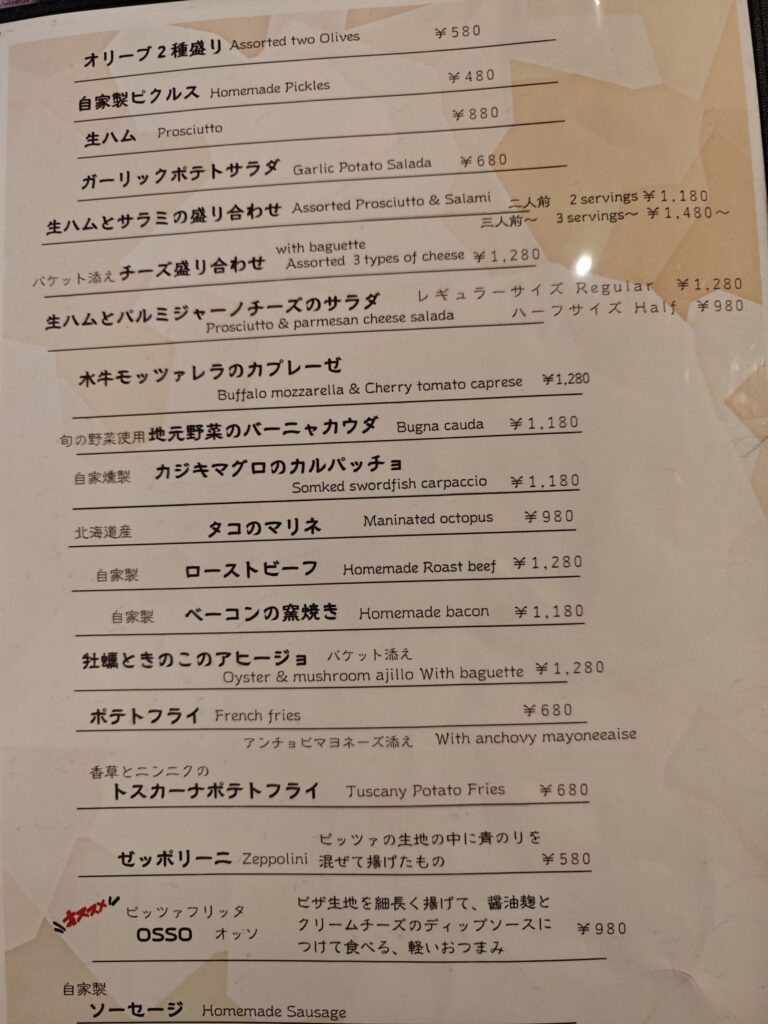 オリーブ2種盛り Assorted two Olives ¥580
自家製ピクルス Homemade Pickles ¥480
生ハム Prosciutto ¥880
ガーリックポテトサラダ Garlic Potato Salada ¥680
生ハムとサラミの盛り合わせ Assorted Prosciutto & Salami 二人前 2 servings ¥1,180
三人前～ 3 servings～ ¥1,480～
with baguette
バケット添え チーズ盛り合わせ Assorted 3 types of cheese ¥1,280
生ハムとパルミジャーノチーズのサラダ レギュラーサイズ Regular ¥1,280
Prosciutto & parmesan cheese salada ハーフサイズ Half ¥980
水牛モッツァレラのカプレーゼ
Buffalo mozzarella & Cherry tomato caprese ¥1,280
旬の野菜使用 地元野菜のバーニャカウダ Bugna cauda ¥1,180
自家燻製 カジキマグロのカルパッチョ
Somked swordfish carpaccio ¥1,180
北海道産 タコのマリネ Maninated octopus ¥980
自家製 ローストビーフ Homemade Roast beef ¥1,280
自家製 ベーコンの窯焼き Homemade bacon ¥1,180
牡蠣ときのこのアヒージョ バケット添え
Oyster & mushroom ajillo With baguette ¥1,280
ポテトフライ French fries ¥680
アンチョビマヨネーズ添え With anchovy mayoneeaise
香草とニンニクの
トスカーナポテトフライ Tuscany Potato Fries ¥680
ゼッポリーニ Zeppolini ピッツァの生地の中に青のりを
混ぜて揚げたもの ¥580
オススメ ピッツァフリッタ ピザ生地を細長く揚げて、醤油麹と
OSSO オッソ クリームチーズのディップソースに ¥980
つけて食べる、軽いおつまみ
自家製
ソーセージ Homemade Sausage